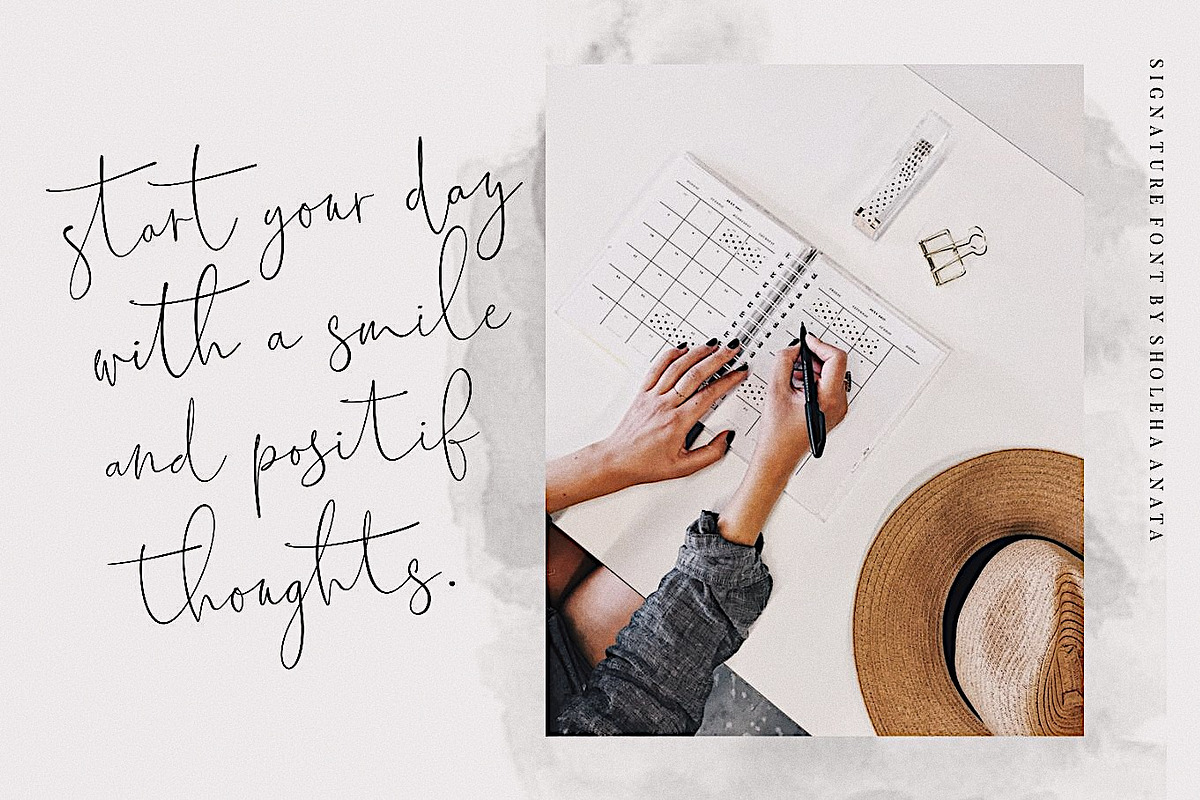 start your day
with a smile
and positif
thoughts.
SIGNATURE FONT BY SHOLEHA ANATA